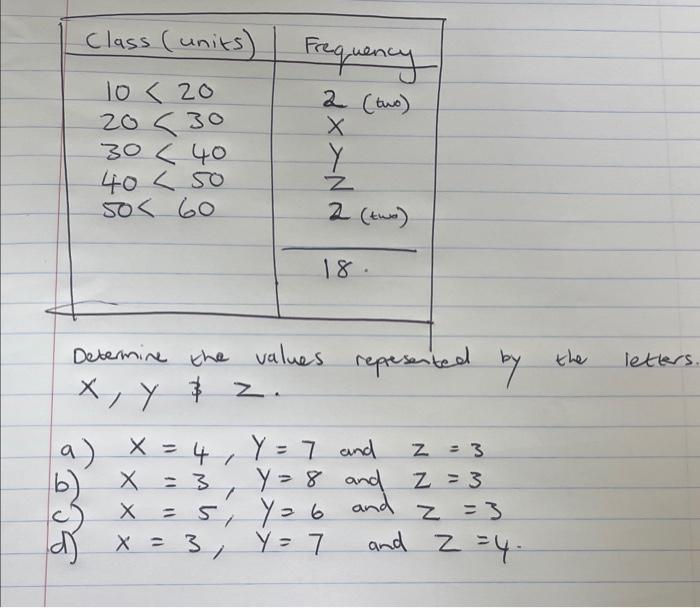 Class (units) Frequency
10 < 20 2 (two)
20 < 30 X
30 < 40 Y
40 < 50 Z
50 < 60 2 (two)
18.
Determine the values represented by the letters.
X, Y & Z.
a) X = 4, Y = 7 and Z = 3
b) X = 3, Y = 8 and Z = 3
c) X = 5, Y = 6 and Z = 3
d) X = 3, Y = 7 and Z = 4.